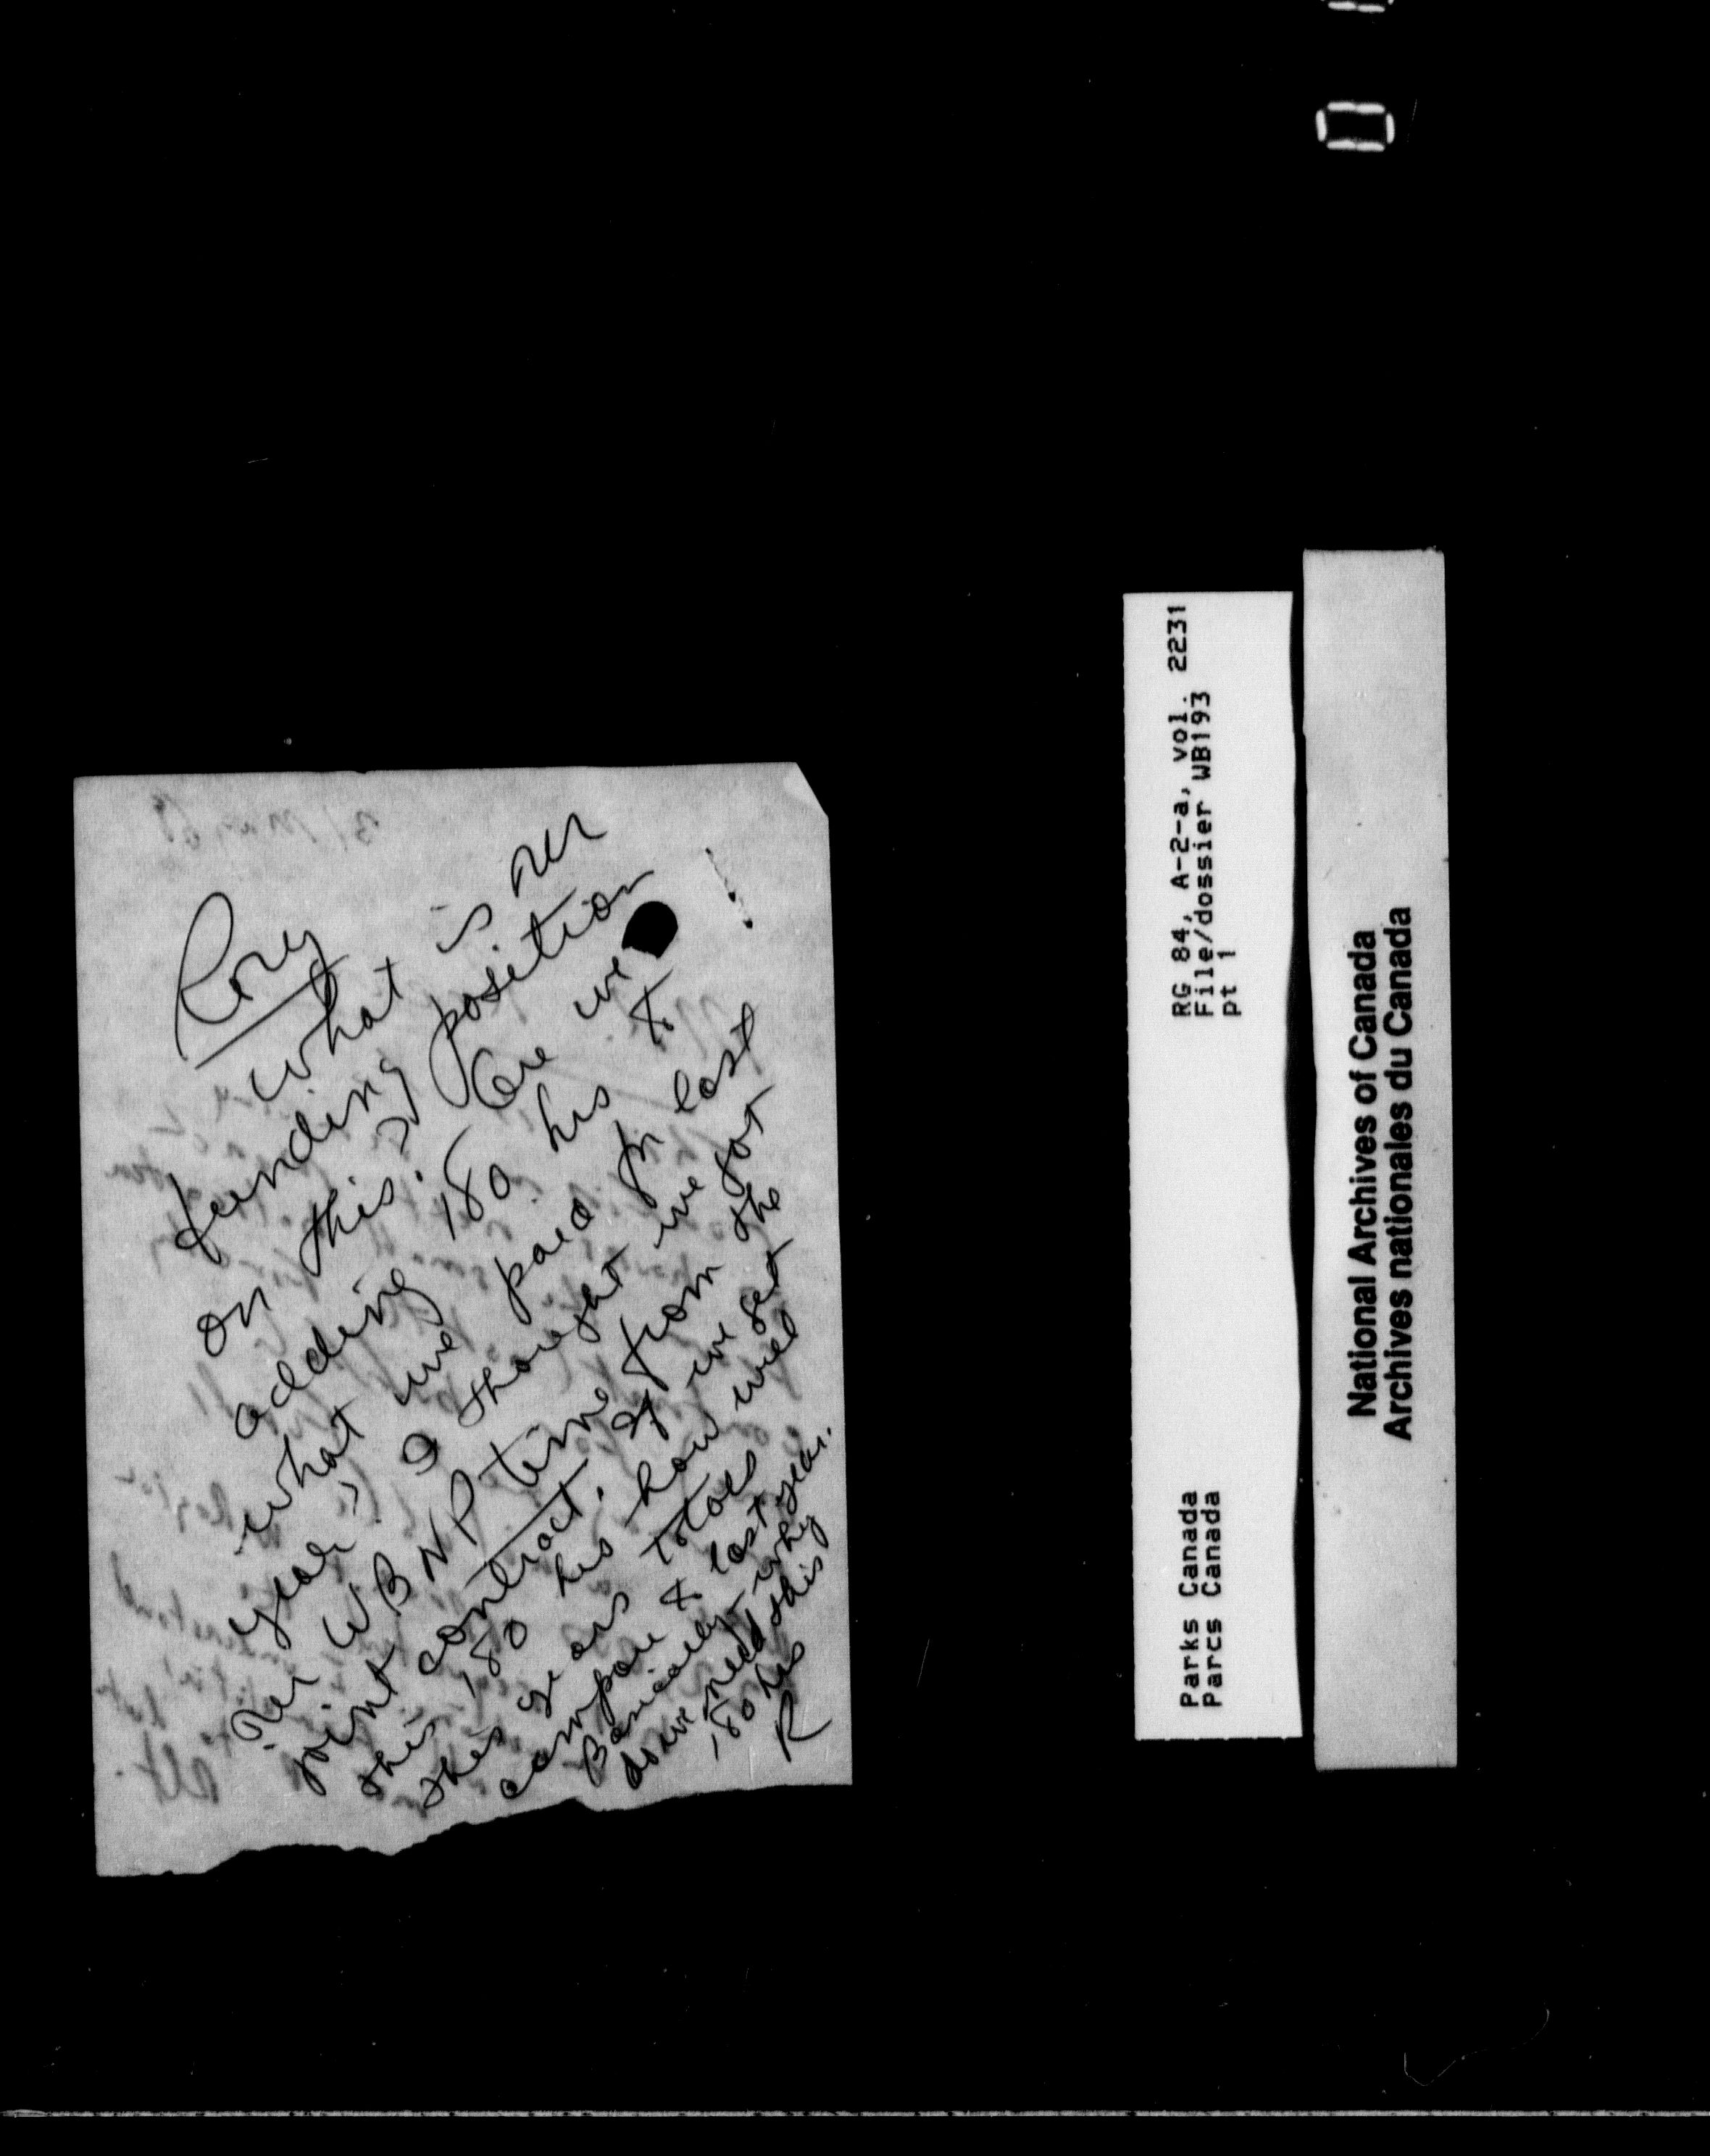 Rory
What is our
funding position
on this? Are we
adding 180 hrs to
what we paid for last
year? I thought we got
our WBNP time from the
joint contract. If we get
this 180 hrs how will
this years totals
compare to last year.
Basically - why
do we need this
180 hrs
R
RG 84, A-2-a, vol. 2231
File/dossier WB193
pt 1
Parks Canada
Parcs Canada
National Archives of Canada
Archives nationales du Canada